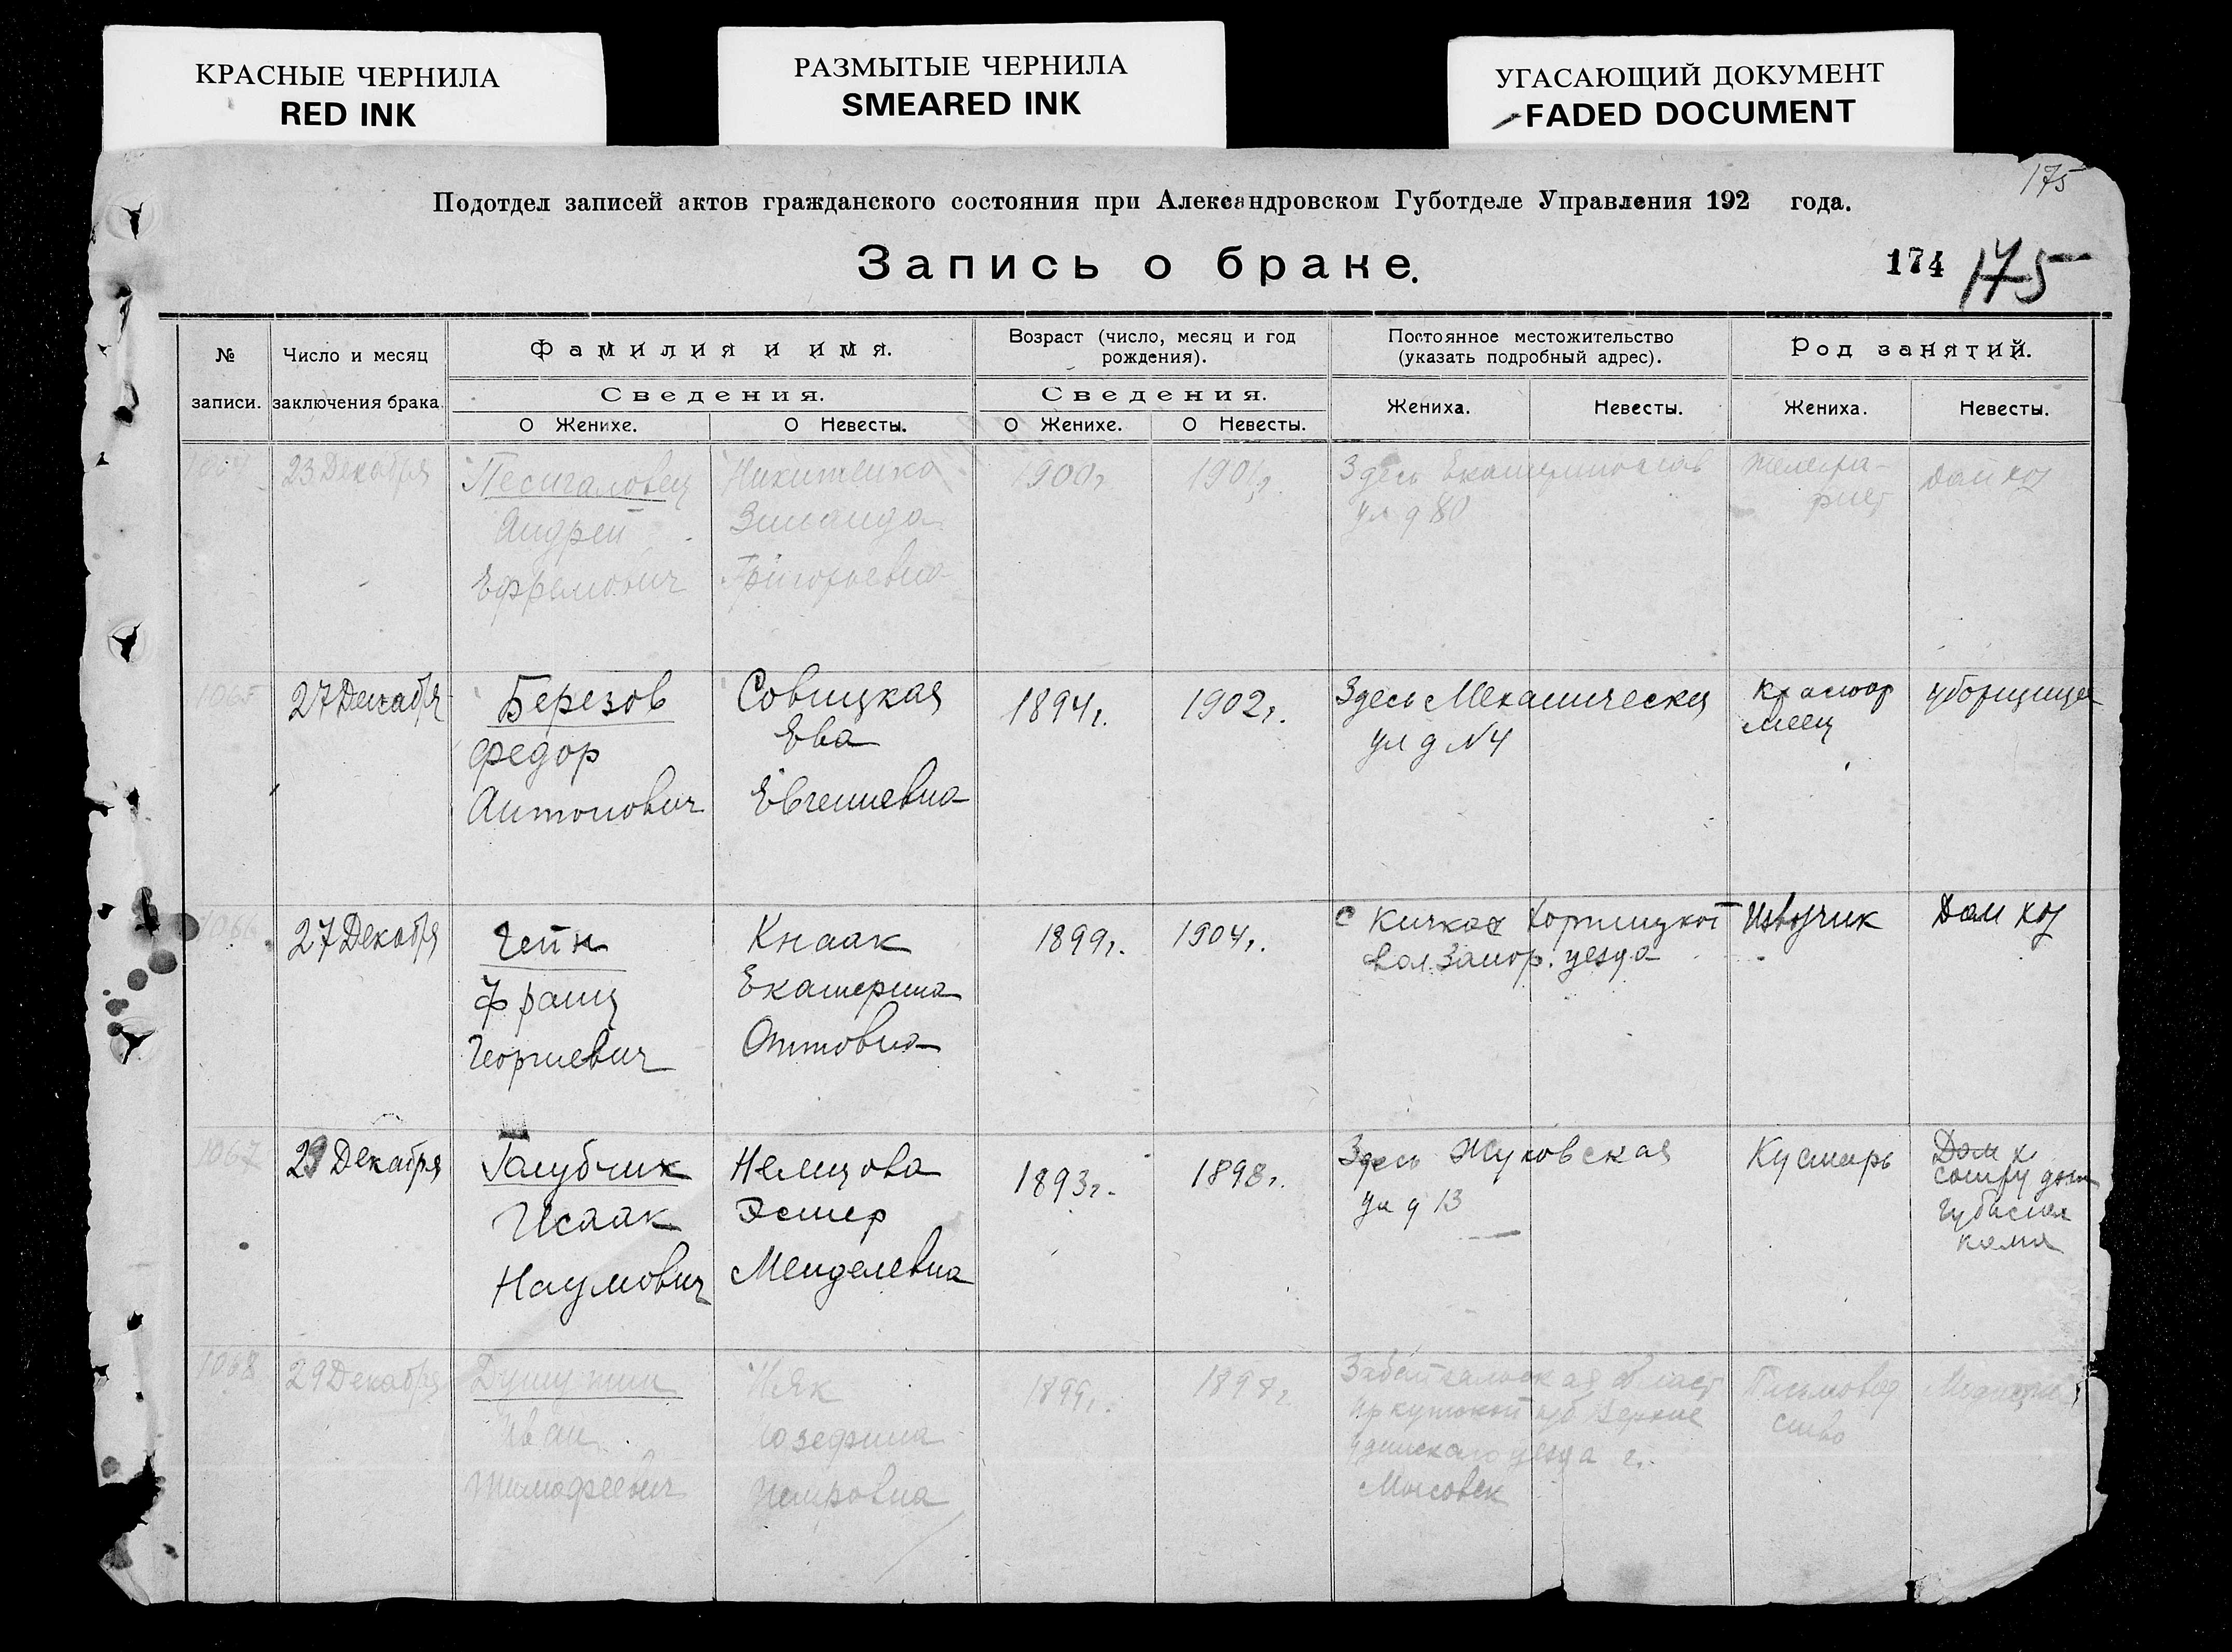 КРАСНЫЕ ЧЕРНИЛА
RED INK
РАЗМЫТЫЕ ЧЕРНИЛА
SMEARED INK
УГАСАЮЩИЙ ДОКУМЕНТ
FADED DOCUMENT
175
Подотдел записей актов гражданского состояния при Александровском Губотделе Управления 192 года.
Запись о браке.
174 175
№ записи.
Число и месяц заключения брака.
Фамилия и имя.
Возраст (число, месяц и год
рождения).
Постоянное местожительство
(указать подробный адрес).
Род занятий.
Сведения.
Сведения.
О Женихе.
О Невесты.
О Женихе.
О Невесты.
Жениха.
Невесты.
Жениха.
Невесты.
1064
23 Декабря
Песигаловец
Андрей
Ефремович
Никитенко
Зинаида
Григорьевна
1900г.
1901г.
Здесь Екатеринослав
ул д 80
телегра-
фист
Дом хоз
1065
27 Декабря
Березов
Федор
Антонович
Совицкая
Ева
Евгениевна
1894г.
1902г.
Здесь Механическая
ул д N4
Красноар
меец
уборщица
1066
27 Декабря
Гейн
Франц
Георгиевич
Кнаак
Екатерина
Оттовна
1899г.
1904г.
с Кичкас Хортицкой
вол. Запор. уезда
Извозчик
Дом хоз
1067
29 Декабря
Голубчик
Исаак
Наумович
Немцова
Эстер
Менделевна
1893г.
1898г.
Здесь Жуковская
ул д 13
Кустарь
Дом х.
1068
29 Декабря
Иван
Тимофеевич
Иозефина
Петровна
1899г.
1898г.
Забайкальская област
Иркутской губ Верхне
удинскаго уезда г.
Мысовск
Письмовод
ство